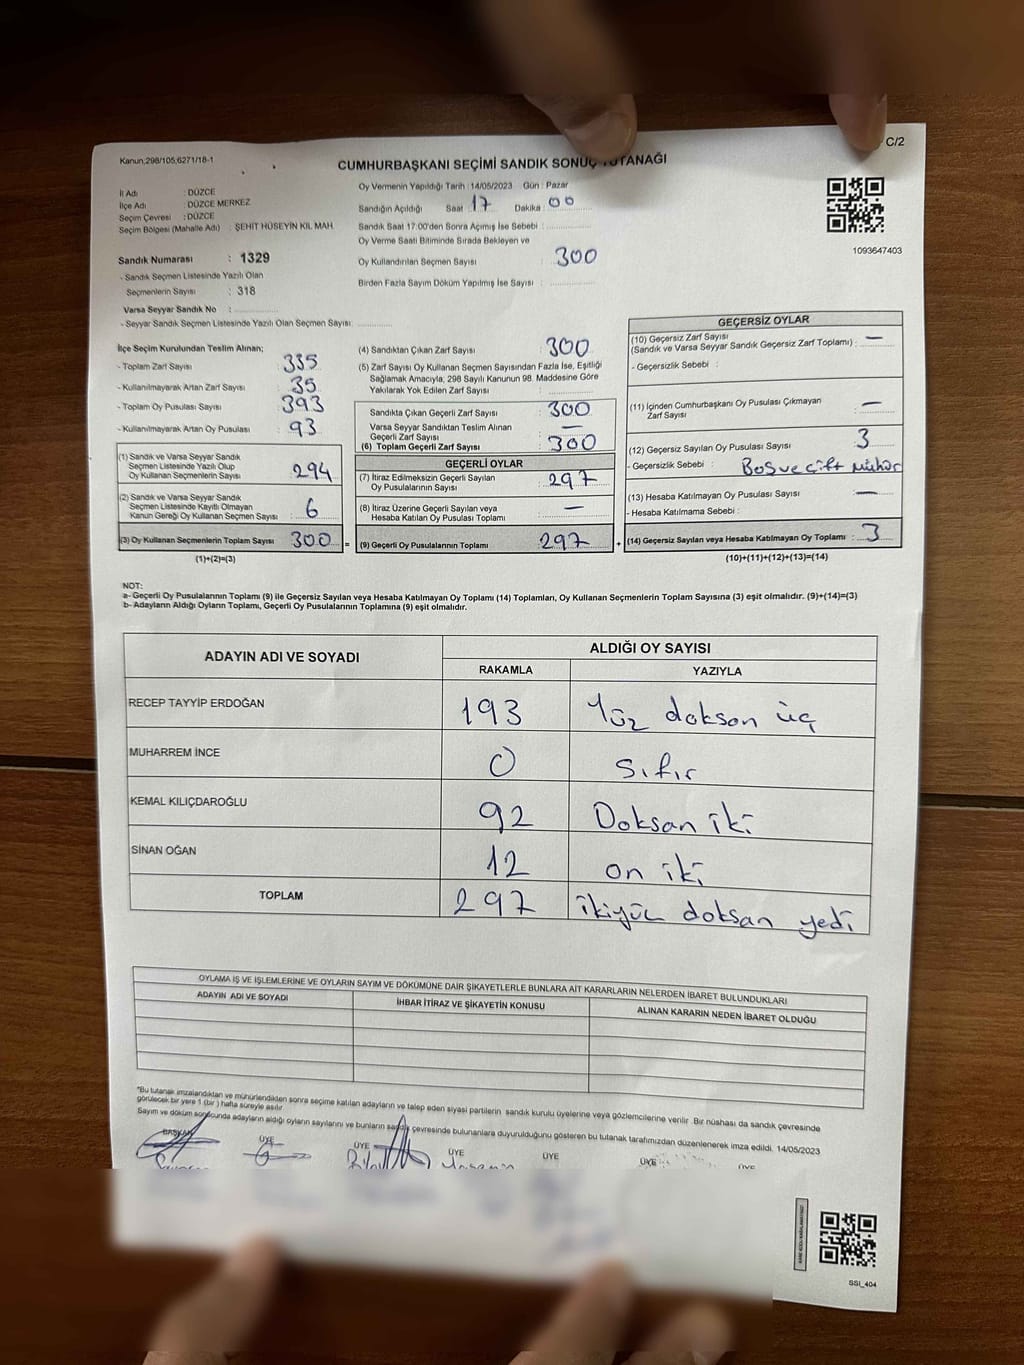 Kanun,298/105,6271/18-1
C/2
CUMHURBAŞKANI SEÇİMİ SANDIK SONUÇ TUTANAĞI
İl Adı : DÜZCE
İlçe Adı : DÜZCE MERKEZ
Seçim Çevresi : DÜZCE
Seçim Bölgesi (Mahalle Adı) : ŞEHİT HÜSEYİN KIL MAH.
Sandık Numarası : 1329
- Sandık Seçmen Listesinde Yazılı Olan
Seçmenlerin Sayısı : 318
Varsa Seyyar Sandık No :
- Seyyar Sandık Seçmen Listesinde Yazılı Olan Seçmen Sayısı:
Oy Vermenin Yapıldığı Tarih :14/05/2023 Gün : Pazar
Sandığın Açıldığı Saat 17 Dakika : 00
Sandık Saat 17:00'den Sonra Açımış İse Sebebi :
Oy Verme Saati Bitiminde Sırada Bekleyen ve
Oy Kullandırılan Seçmen Sayısı : 300
Birden Fazla Sayım Döküm Yapılmış İse Sayısı :
1093647403
İlçe Seçim Kurulundan Teslim Alınan;
- Toplam Zarf Sayısı : 335
- Kullanılmayarak Artan Zarf Sayısı : 35
- Toplam Oy Pusulası Sayısı : 393
- Kullanılmayarak Artan Oy Pusulası : 93
(1) Sandık ve Varsa Seyyar Sandık
Seçmen Listesinde Yazılı Olup
Oy Kullanan Seçmenlerin Sayısı : 294
(2) Sandık ve Varsa Seyyar Sandık
Seçmen Listesinde Kayıtlı Olmayan
Kanun Gereği Oy Kullanan Seçmen Sayısı : 6
(3) Oy Kullanan Seçmenlerin Toplam Sayısı : 300 =
(1)+(2)=(3)
(4) Sandıktan Çıkan Zarf Sayısı : 300
(5) Zarf Sayısı Oy Kullanan Seçmen Sayısından Fazla İse, Eşitliği
Sağlamak Amacıyla, 298 Sayılı Kanunun 98. Maddesine Göre
Yakılarak Yok Edilen Zarf Sayısı :
Sandıkta Çıkan Geçerli Zarf Sayısı : 300
Varsa Seyyar Sandıktan Teslim Alınan
Geçerli Zarf Sayısı : —
(6) Toplam Geçerli Zarf Sayısı : 300
GEÇERLİ OYLAR
(7) İtiraz Edilmeksizin Geçerli Sayılan
Oy Pusulalarının Sayısı : 297
(8) İtiraz Üzerine Geçerli Sayılan veya
Hesaba Katılan Oy Pusulası Toplamı : —
(9) Geçerli Oy Pusulalarının Toplamı : 297 +
GEÇERSİZ OYLAR
(10) Geçersiz Zarf Sayısı
(Sandık ve Varsa Seyyar Sandık Geçersiz Zarf Toplamı) : —
- Geçersizlik Sebebi :
(11) İçinden Cumhurbaşkanı Oy Pusulası Çıkmayan
Zarf Sayısı : —
(12) Geçersiz Sayılan Oy Pusulası Sayısı : 3
- Geçersizlik Sebebi : Boş ve çift mühür
(13) Hesaba Katılmayan Oy Pusulası Sayısı : —
- Hesaba Katılmama Sebebi :
(14) Geçersiz Sayılan veya Hesaba Katılmayan Oy Toplamı : 3
(10)+(11)+(12)+(13)=(14)
NOT:
a- Geçerli Oy Pusulalarının Toplamı (9) ile Geçersiz Sayılan veya Hesaba Katılmayan Oy Toplamı (14) Toplamları, Oy Kullanan Seçmenlerin Toplam Sayısına (3) eşit olmalıdır. (9)+(14)=(3)
b- Adayların Aldığı Oyların Toplamı, Geçerli Oy Pusulalarının Toplamına (9) eşit olmalıdır.
ADAYIN ADI VE SOYADI ALDIĞI OY SAYISI
RAKAMLA YAZIYLA
RECEP TAYYİP ERDOĞAN 193 Yüz doksan üç
MUHARREM İNCE 0 Sıfır
KEMAL KILIÇDAROĞLU 92 Doksan iki
SİNAN OĞAN 12 on iki
TOPLAM 297 ikiyüz doksan yedi
OYLAMA İŞ VE İŞLEMLERİNE VE OYLARIN SAYIM VE DÖKÜMÜNE DAİR ŞİKAYETLERLE BUNLARA AİT KARARLARIN NELERDEN İBARET BULUNDUKLARI
ADAYIN ADI VE SOYADI İHBAR İTİRAZ VE ŞİKAYETİN KONUSU ALINAN KARARIN NEDEN İBARET OLDUĞU
*Bu tutanak imzalandıktan ve mühürlendikten sonra seçime katılan adayların ve talep eden siyasi partilerin sandık kurulu üyelerine veya gözlemcilerine verilir. Bir nüshası da sandık çevresinde
görülecek bir yere 1 (bir ) hafta süreyle asılır.
Sayım ve döküm sonucunda adayların aldığı oyların sayılarını ve bunların sandık çevresinde bulunanlara duyurulduğunu gösteren bu tutanak tarafımızdan düzenlenerek imza edildi. 14/05/2023
BAŞKAN ÜYE ÜYE ÜYE ÜYE ÜYE ÜYE
SSI_404